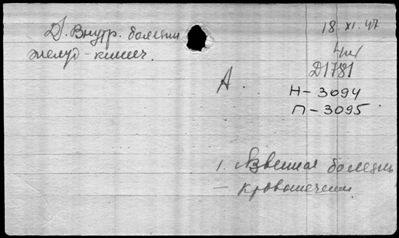 Д. Внутр. болезни
желуд-кишеч.
18.XI.47
Д1781
А.
Н-3094
П-3095
1. Язвенная болезнь
— кровотечения